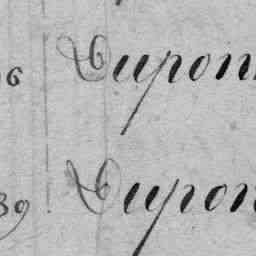 96 Dupon
89 Dupon